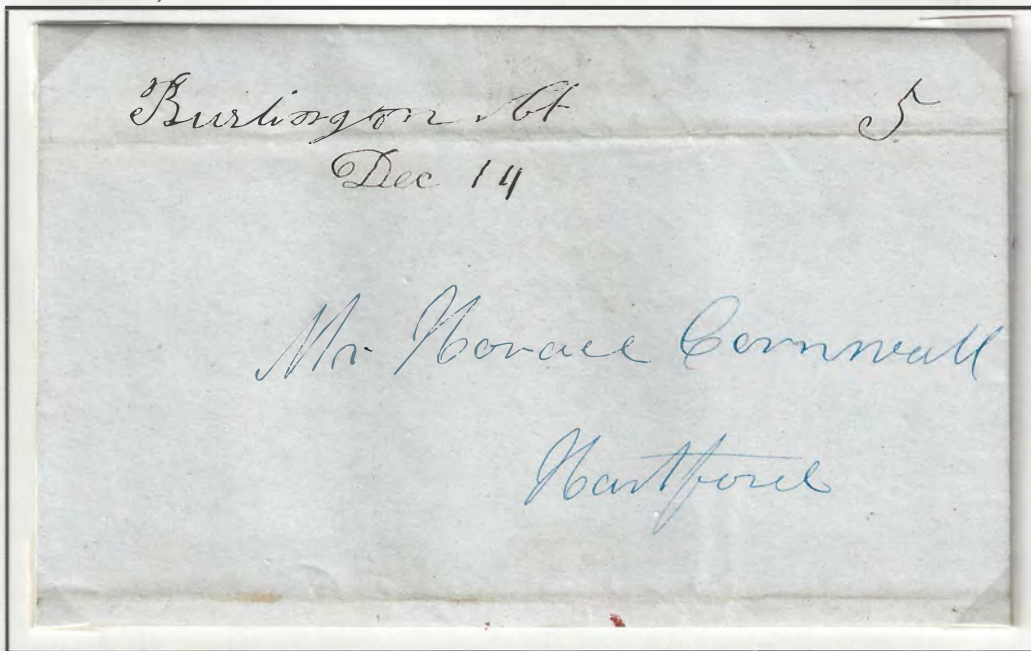 Burlington Ct 5
Dec 14
Mr Horace Cornwall
Hartford